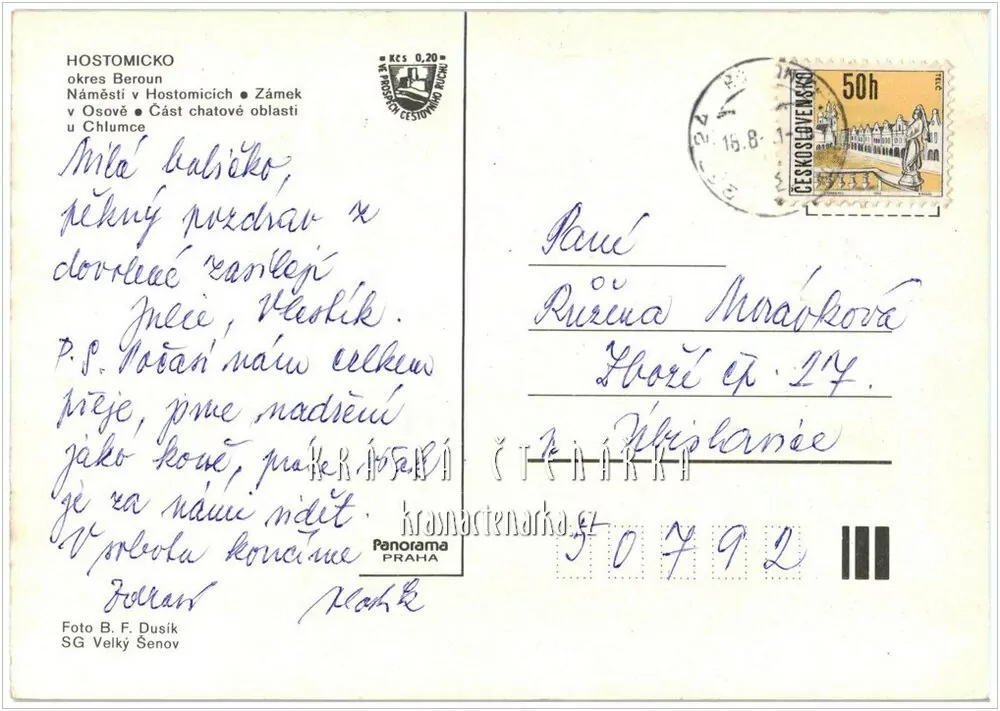 HOSTOMICKO
okres Beroun
Náměstí v Hostomicích • Zámek
v Osově • Část chatové oblasti
u Chlumce
Kčs 0,20
VE PROSPĚCH CESTOVNÍHO RUCHU
ČESKOSLOVENSKO
50h
TELČ
Milá babičko,
pěkný pozdrav z
dovolené zasílají
Julie, Vlastík.
P.S. Počasí nám celkem
přeje, jsme nadření
jako koně, práce však
je za námi vidět.
V sobotu končíme
Zdraví Vlastík
Paní
Růžena Morávková
Zboží čp. 27.
p. Úbislavice
50792
KRÁSNÁ ČTENÁŘKA
krasnactenarka.cz
Panorama
PRAHA
Foto B. F. Dusík
SG Velký Šenov